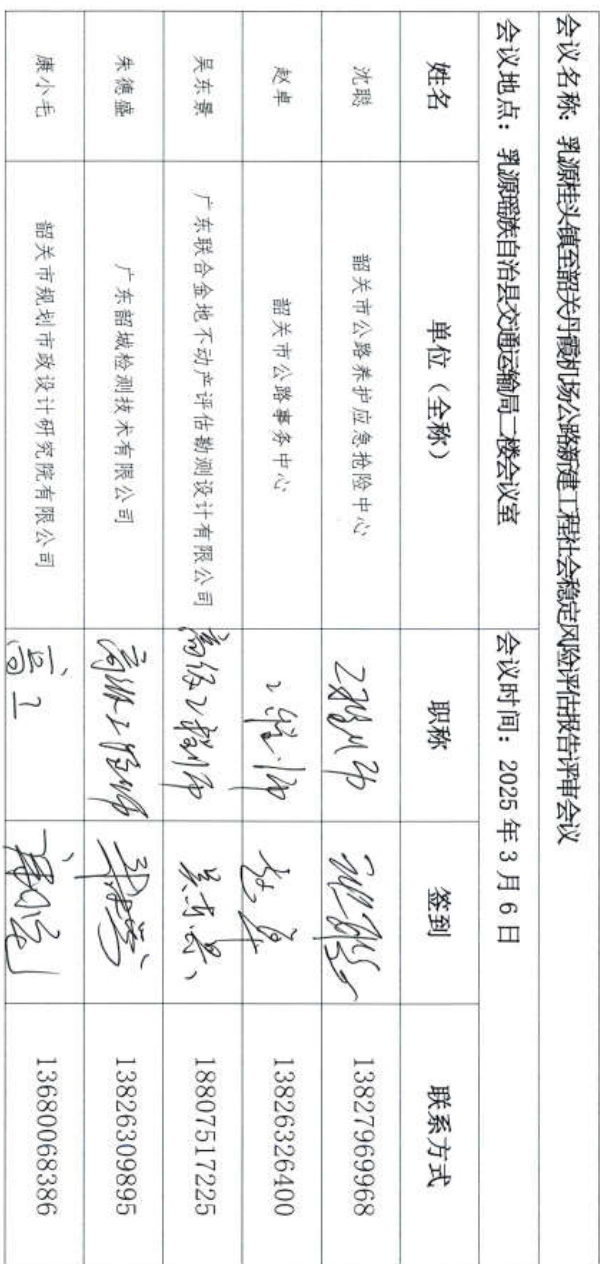 会议名称：乳源桂头镇至韶关丹霞机场公路新建工程社会稳定风险评估报告评审会议
会议地点：乳源瑶族自治县交通运输局二楼会议室 会议时间：2025 年 3 月 6 日
姓名 单位（全称） 职称 签到 联系方式
沈聪 韶关市公路养护应急抢险中心 工程师 沈聪 13827969968
赵卓 韶关市公路事务中心 工程师 赵卓 13826326400
吴东景 广东联合金地不动产评估勘测设计有限公司 高级工程师 吴东景 18807517225
朱德盛 广东韶城检测技术有限公司 高级工程师 朱德盛 13826309895
康小毛 韶关市规划市政设计研究院有限公司 高工 康小毛 13680068386